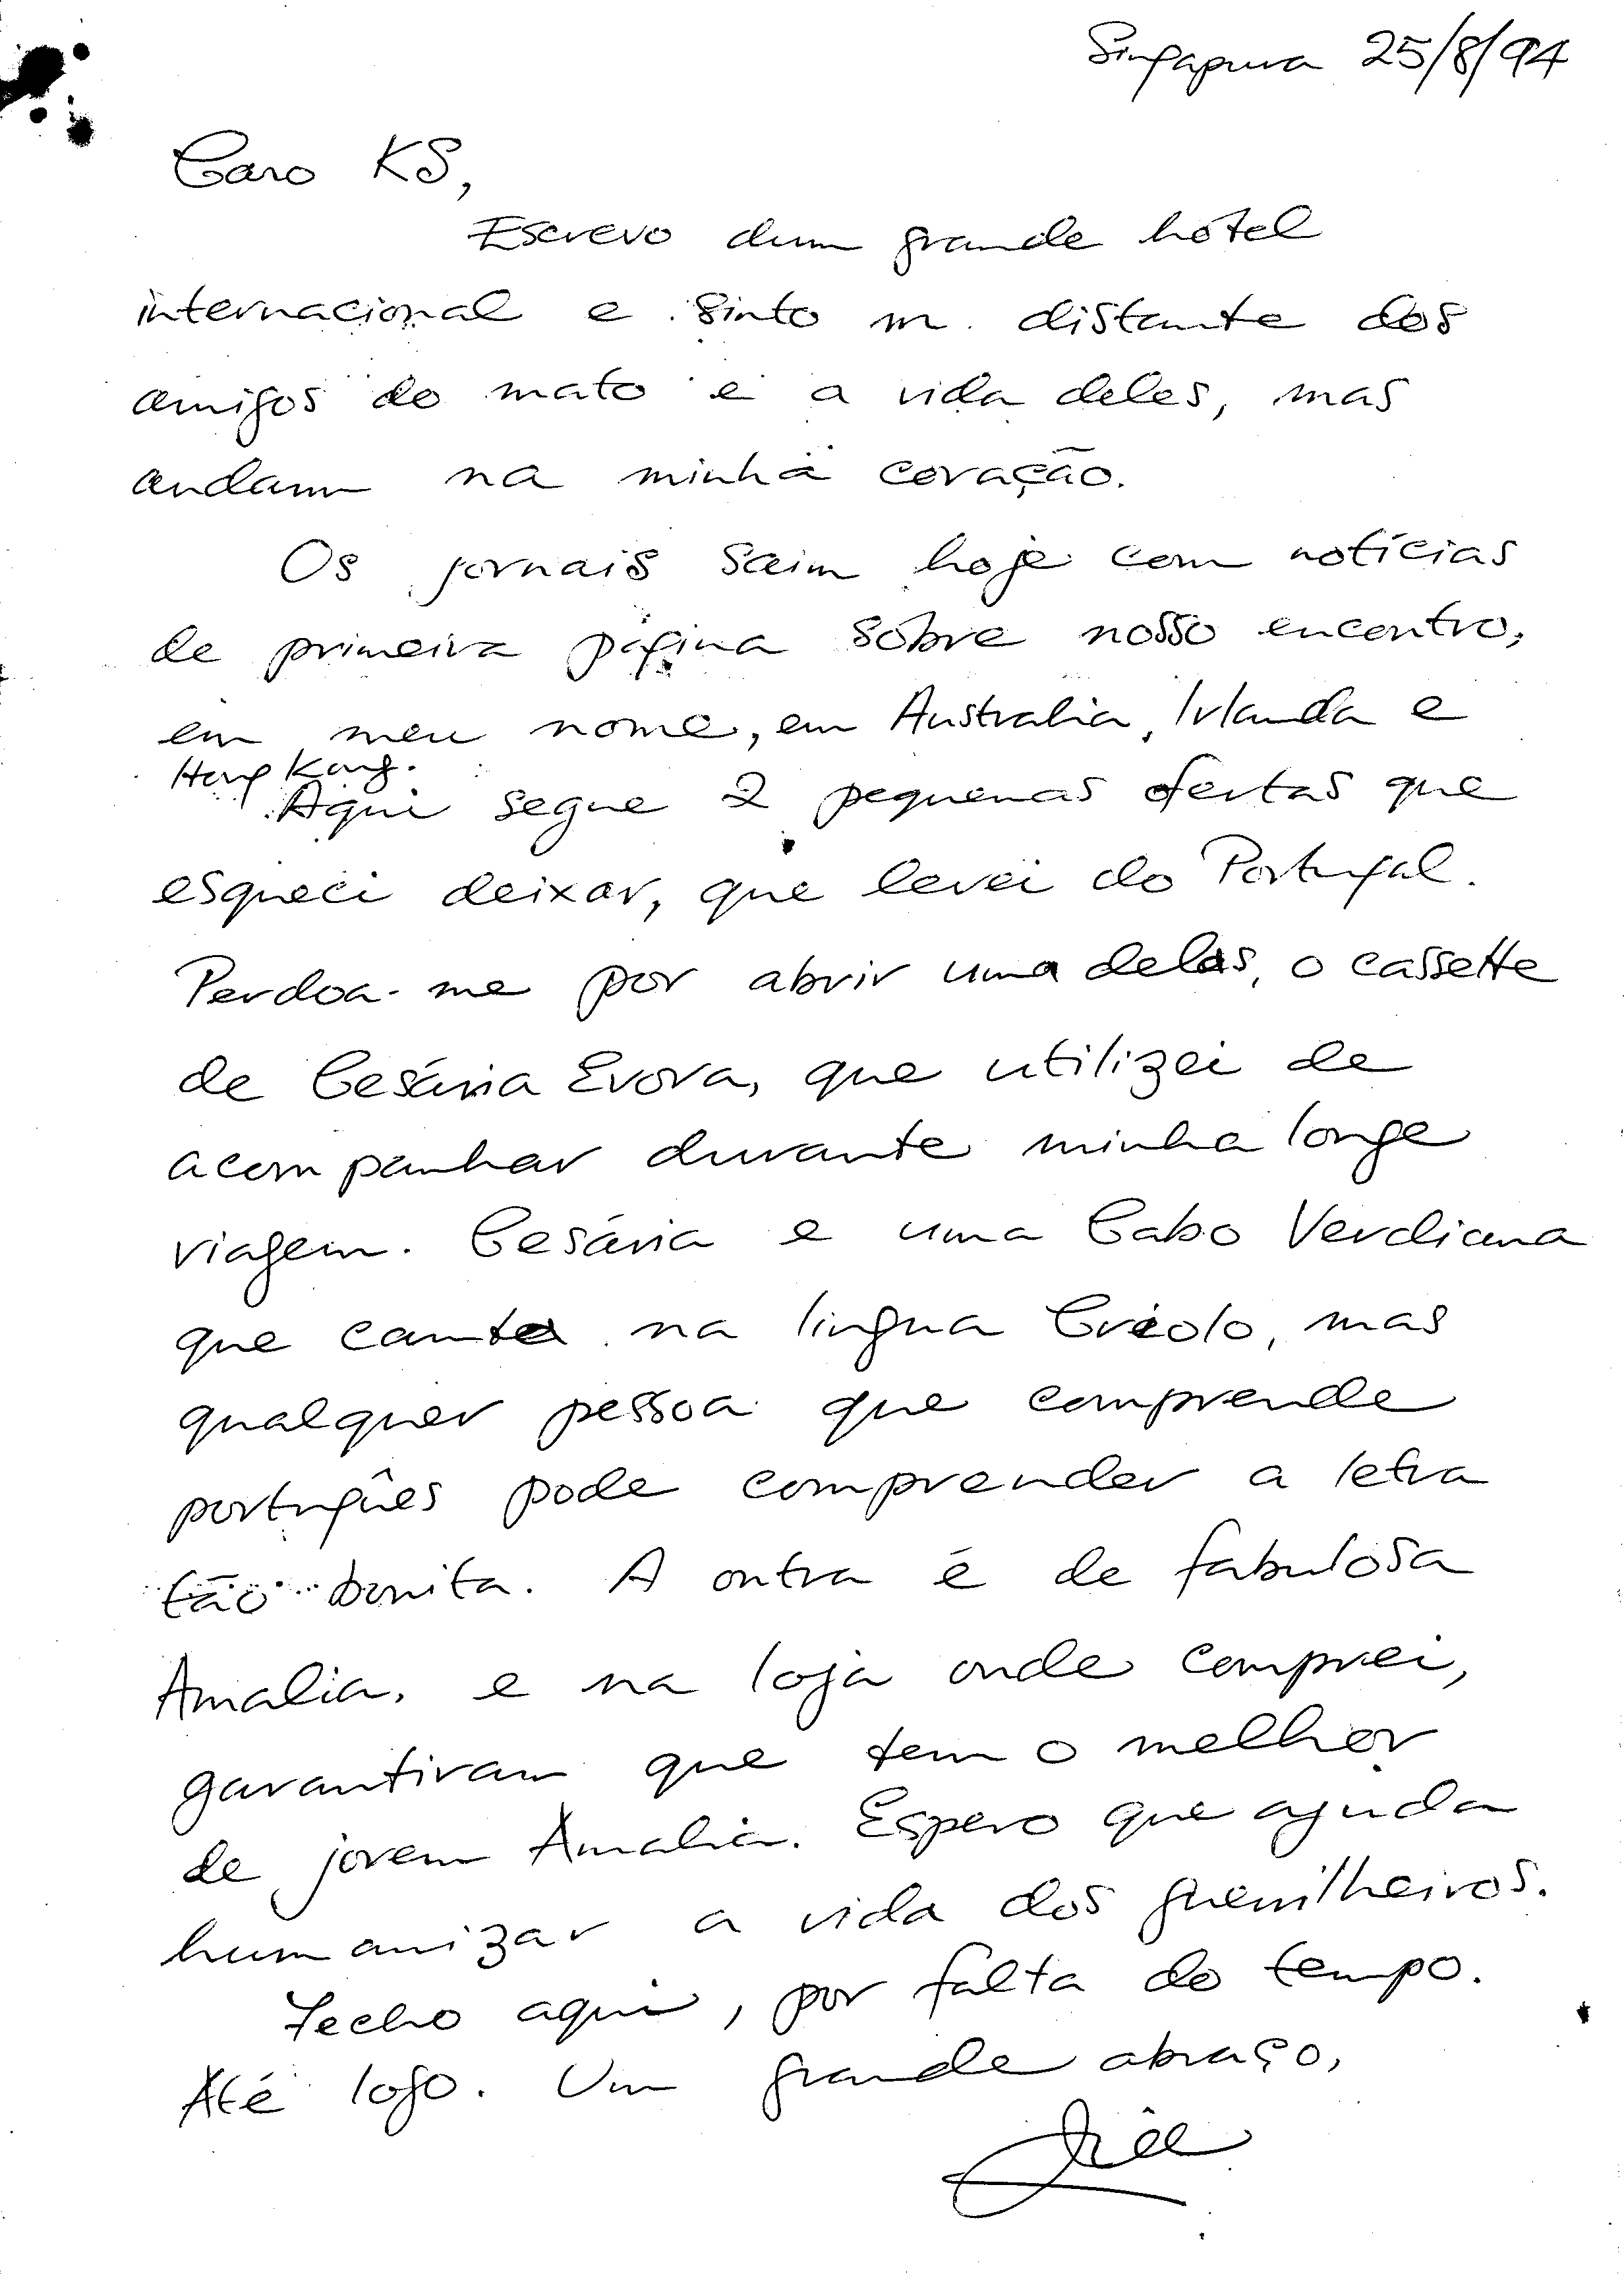 Singapura 25/8/94
Caro KS,
Escrevo dum grande hotel
internacional e sinto m. distante dos
amigos do mato e a vida deles, mas
andam na minha coração.
Os jornais saim hoje com notícias
de primeira página sobre nosso encontro,
em meu nome, em Australia, Irlanda e
Hong Kong.
Aqui segue 2 pequenas ofertas que
esqueci deixar, que levei do Portugal.
Perdoa-me por abrir uma delas, o cassette
de Cesária Evora, que utilizei de
acompanhar durante minha longe
viagem. Cesária e uma Cabo Verdiana
que canta na lingua Criolo, mas
qualquer pessoa que comprende
portugûes pode comprender a letra
tão bonita. A outra é de fabulosa
Amalia, e na loja onde comprei,
garantiram que tem o melhor
de jovem Amalia. Espero que ajuda
humanizar a vida dos guerrilheiros.
Fecho aqui, por falta do tempo.
Até logo. Um grande abraço,